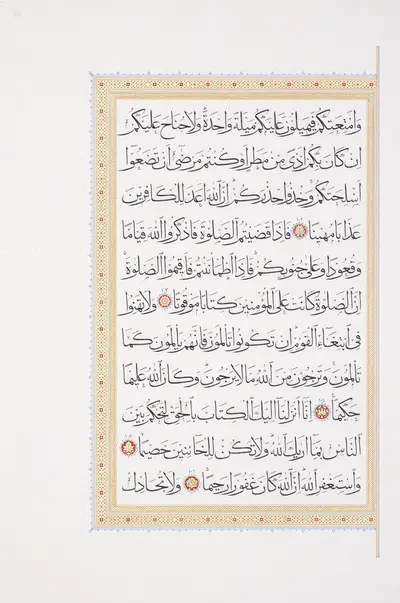 وَاَمْتِعَتِكُمْ فَيَمِيلُونَ عَلَيْكُمْ مَيْلَةً وَاحِدَةً وَلَا جُنَاحَ عَلَيْكُمْ
اِنْ كَانَ بِكُمْ اَذًى مِنْ مَطَرٍ اَوْ كُنْتُمْ مَرْضٰى اَنْ تَضَعُوا
اَسْلِحَتَكُمْ وَخُذُوا حِذْرَكُمْ اِنَّ اللّٰهَ اَعَدَّ لِلْكَافِرِينَ
عَذَابًا مُهِينًا فَاِذَا قَضَيْتُمُ الصَّلٰوةَ فَاذْكُرُوا اللّٰهَ قِيَامًا
وَقُعُودًا وَعَلٰى جُنُوبِكُمْ فَاِذَا اطْمَأْنَنْتُمْ فَاَقِيمُوا الصَّلٰوةَ
اِنَّ الصَّلٰوةَ كَانَتْ عَلَى الْمُؤْمِنِينَ كِتَابًا مَوْقُوتًا وَلَا تَهِنُوا
فِي ابْتِغَاءِ الْقَوْمِ اِنْ تَكُونُوا تَأْلَمُونَ فَاِنَّهُمْ يَأْلَمُونَ كَمَا
تَأْلَمُونَ وَتَرْجُونَ مِنَ اللّٰهِ مَا لَا يَرْجُونَ وَكَانَ اللّٰهُ عَلِيمًا
حَكِيمًا اِنَّا اَنْزَلْنَا اِلَيْكَ الْكِتَابَ بِالْحَقِّ لِتَحْكُمَ بَيْنَ
النَّاسِ بِمَا اَرٰيكَ اللّٰهُ وَلَا تَكُنْ لِلْخَائِنِينَ خَصِيمًا
وَاسْتَغْفِرِ اللّٰهَ اِنَّ اللّٰهَ كَانَ غَفُورًا رَحِيمًا وَلَا تُجَادِلْ